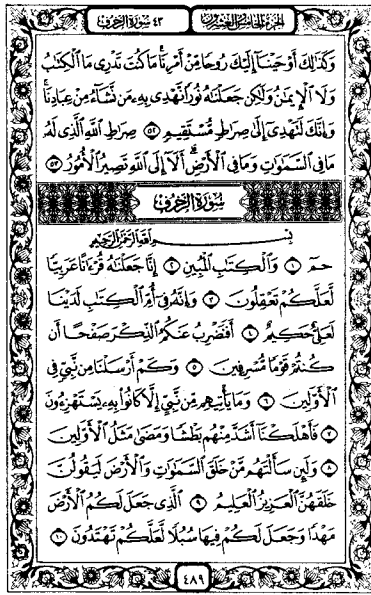 الجزء الخامس والعشرون ٤٣ سورة الزخرف
وَكَذَٰلِكَ أَوْحَيْنَآ إِلَيْكَ رُوحًا مِّنْ أَمْرِنَا ۚ مَا كُنتَ تَدْرِى مَا ٱلْكِتَٰبُ
وَلَا ٱلْإِيمَٰنُ وَلَٰكِن جَعَلْنَٰهُ نُورًا نَّهْدِى بِهِۦ مَن نَّشَآءُ مِنْ عِبَادِنَا ۚ
وَإِنَّكَ لَتَهْدِىٓ إِلَىٰ صِرَٰطٍ مُّسْتَقِيمٍ ٥٢ صِرَٰطِ ٱللَّهِ ٱلَّذِى لَهُۥ
مَا فِى ٱلسَّمَٰوَٰتِ وَمَا فِى ٱلْأَرْضِ ۗ أَلَآ إِلَى ٱللَّهِ تَصِيرُ ٱلْأُمُورُ ٥٣
سورة الزخرف
بِسْمِ ٱللَّهِ ٱلرَّحْمَٰنِ ٱلرَّحِيمِ
حمٓ ١ وَٱلْكِتَٰبِ ٱلْمُبِينِ ٢ إِنَّا جَعَلْنَٰهُ قُرْءَٰنًا عَرَبِيًّا
لَّعَلَّكُمْ تَعْقِلُونَ ٣ وَإِنَّهُۥ فِىٓ أُمِّ ٱلْكِتَٰبِ لَدَيْنَا
لَعَلِىٌّ حَكِيمٌ ٤ أَفَنَضْرِبُ عَنكُمُ ٱلذِّكْرَ صَفْحًا أَن
كُنتُمْ قَوْمًا مُّسْرِفِينَ ٥ وَكَمْ أَرْسَلْنَا مِن نَّبِىٍّ فِى
ٱلْأَوَّلِينَ ٦ وَمَا يَأْتِيهِم مِّن نَّبِىٍّ إِلَّا كَانُوا۟ بِهِۦ يَسْتَهْزِءُونَ
٧ فَأَهْلَكْنَآ أَشَدَّ مِنْهُم بَطْشًا وَمَضَىٰ مَثَلُ ٱلْأَوَّلِينَ
٨ وَلَئِن سَأَلْتَهُم مَّنْ خَلَقَ ٱلسَّمَٰوَٰتِ وَٱلْأَرْضَ لَيَقُولُنَّ
خَلَقَهُنَّ ٱلْعَزِيزُ ٱلْعَلِيمُ ٩ ٱلَّذِى جَعَلَ لَكُمُ ٱلْأَرْضَ
مَهْدًا وَجَعَلَ لَكُمْ فِيهَا سُبُلًا لَّعَلَّكُمْ تَهْتَدُونَ ١٠
٤٨٩